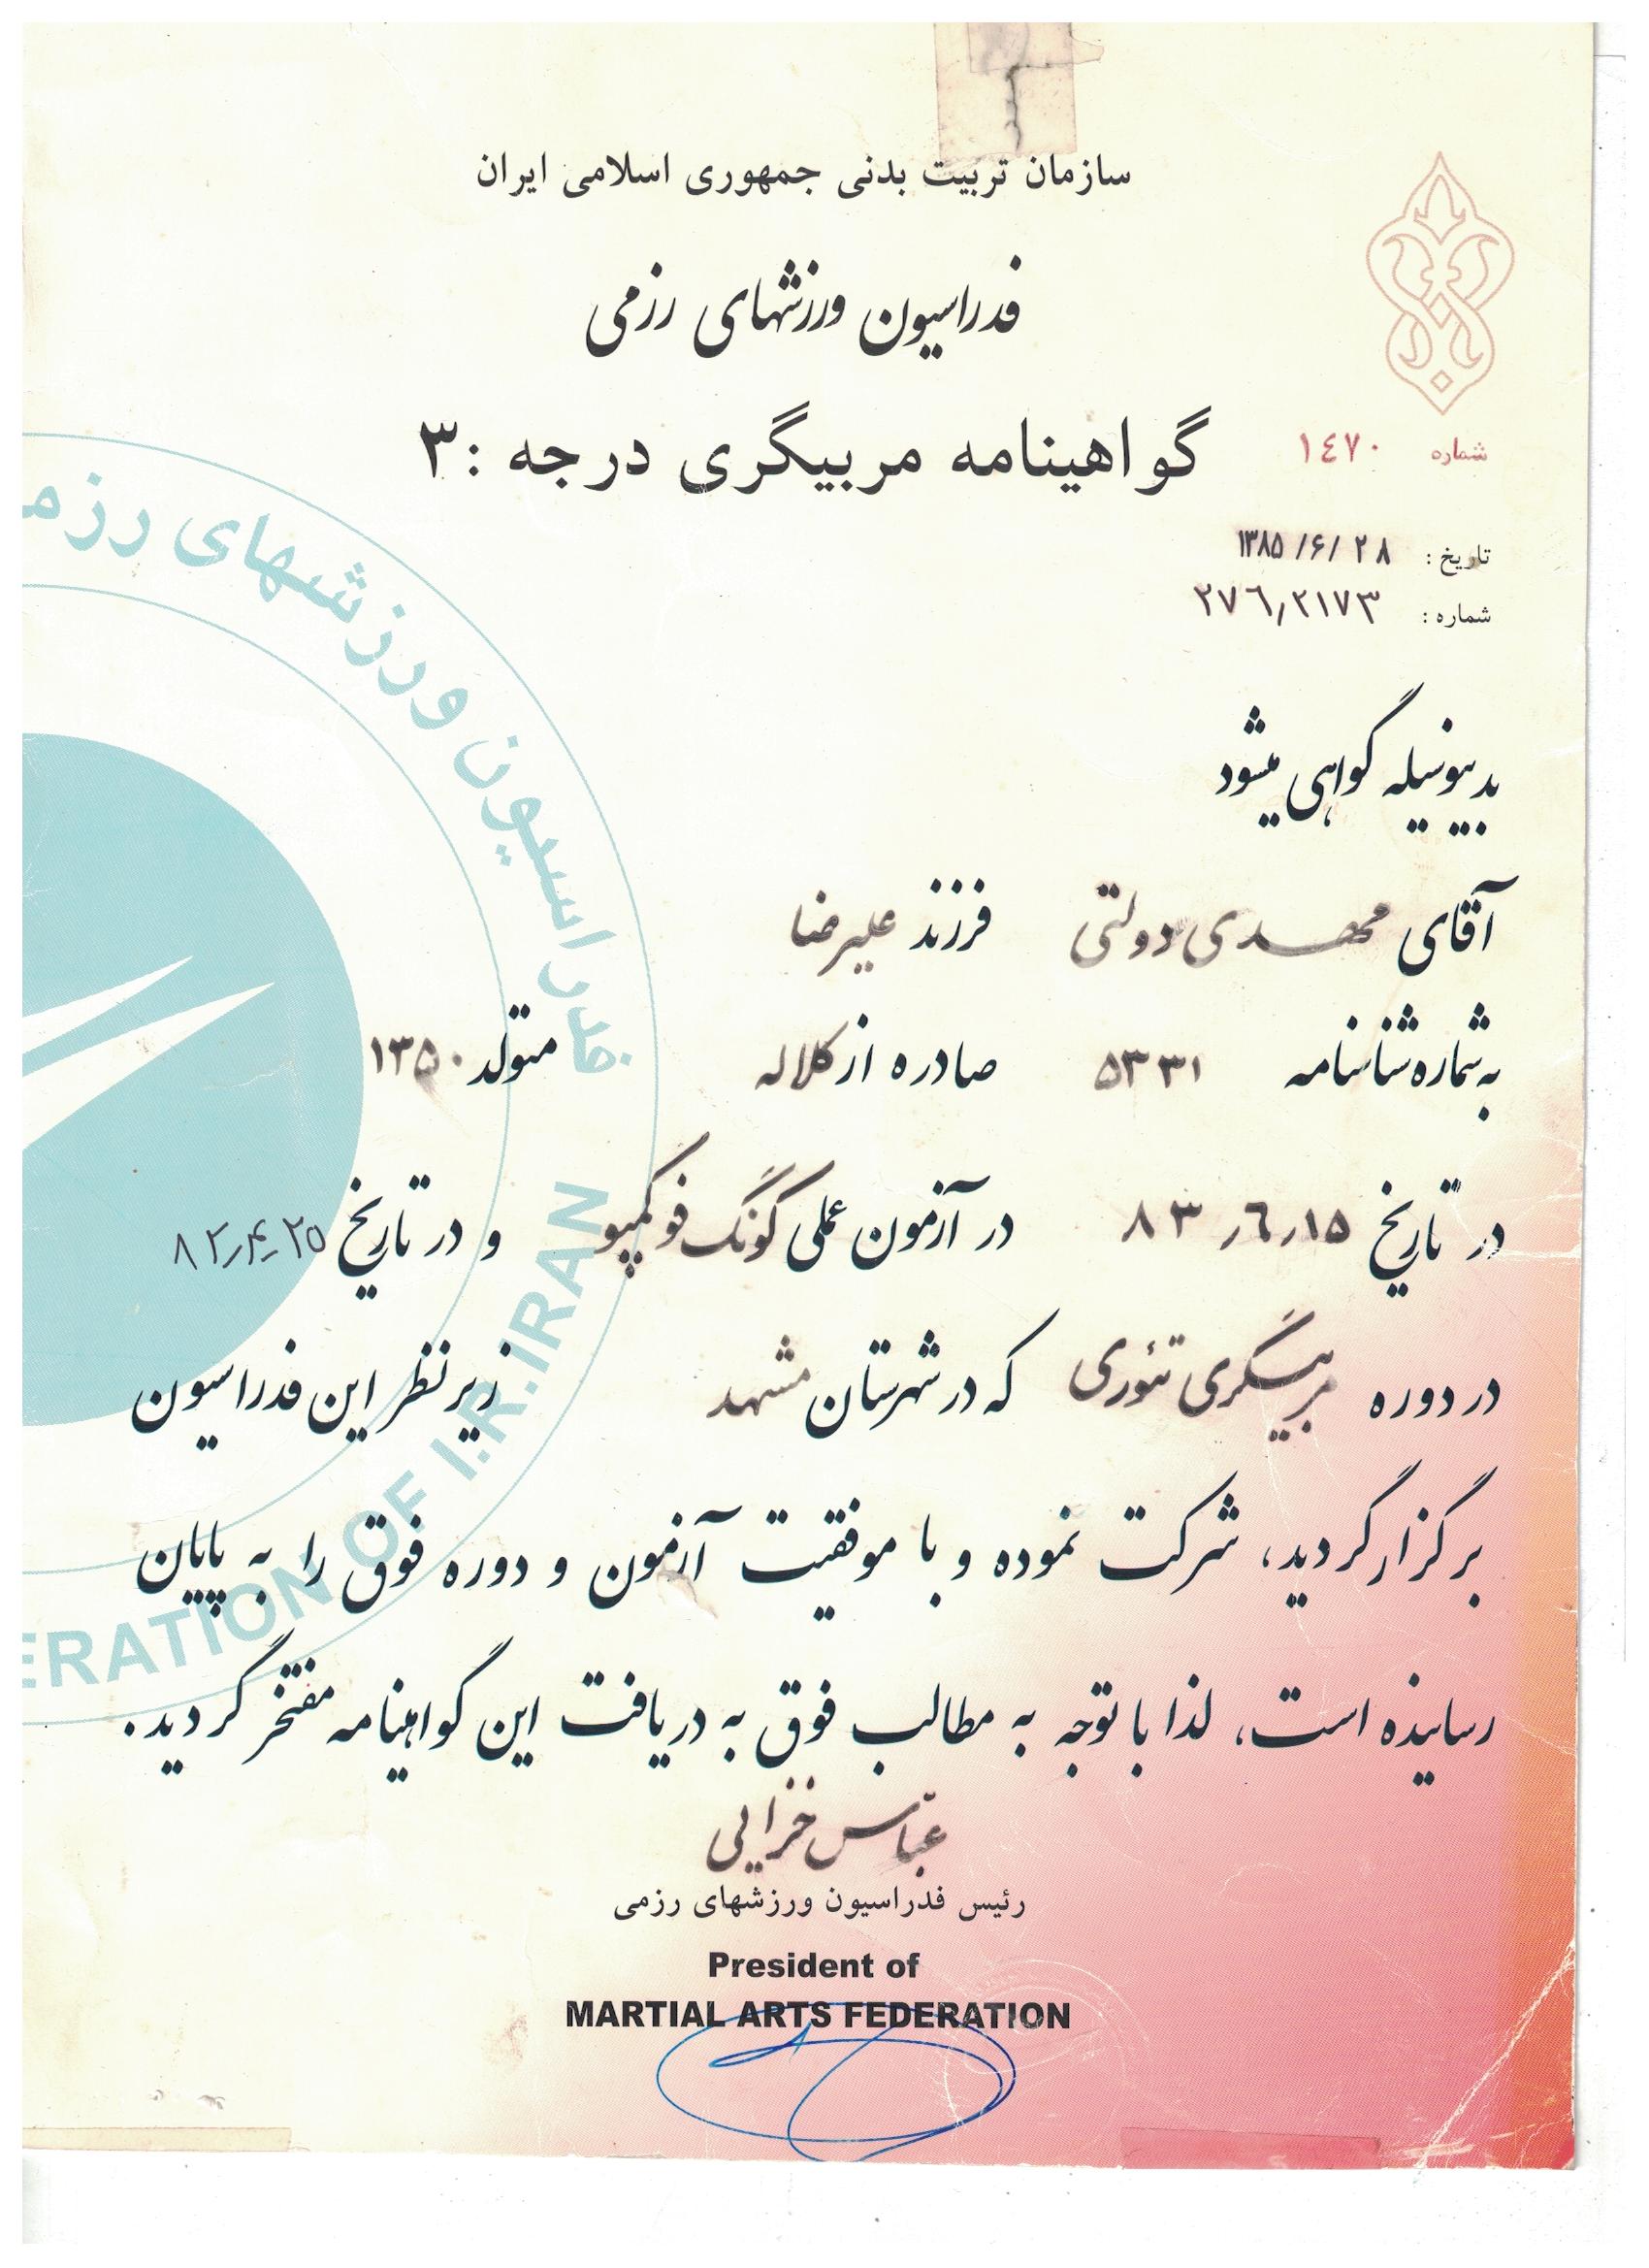 سازمان تربیت بدنی جمهوری اسلامی ایران
فدراسیون ورزشهای رزمی
گواهینامه مربیگری درجه :۳
شماره ١٤٧٠
تاریخ : ۱۳۸۵/۶/۲۸
شماره : ٢٧٦٫٢١٧٣
بدینوسیله گواهی میشود
آقای مهدی دولتی فرزند علیرضا
به شماره شناسنامه ۵۳۳۱ صادره از کلاله متولد ۱۳۵۰
در تاریخ ۸۳٫٦٫۱۵ در آزمون عملی گونگ فو کمپو و در تاریخ
در دوره مربیگری تئوری که در شهرستان مشهد زیر نظر این فدراسیون
برگزار گردید، شرکت نموده و با موفقیت آزمون و دوره فوق را به پایان
رسانیده است، لذا با توجه به مطالب فوق به دریافت این گواهینامه مفتخر گردید.
عباس خزایی
رئیس فدراسیون ورزشهای رزمی
President of
MARTIAL ARTS FEDERATION
فدراسیون ورزشهای رزم
ERATION OF I.R.IRAN